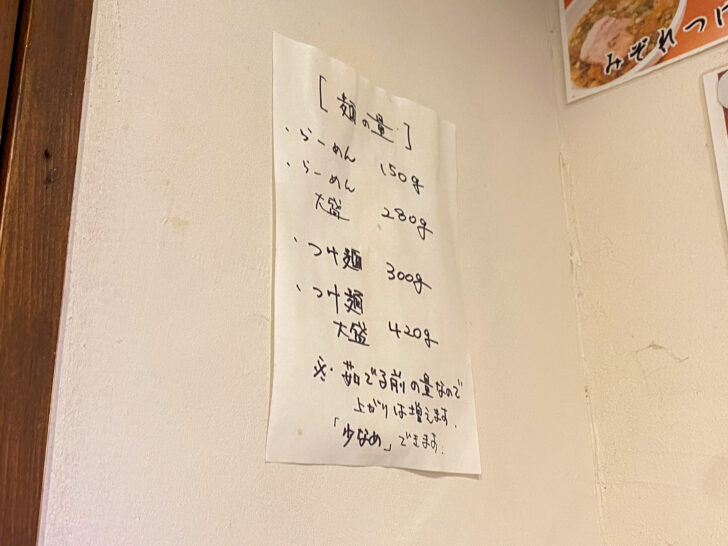 [麺の量]
・らーめん 150g
・らーめん
大盛 280g
・つけ麺 300g
・つけ麺
大盛 420g
※・茹でる前の量なので
上がりは増えます.
「少なめ」できます.
みぞれつけ